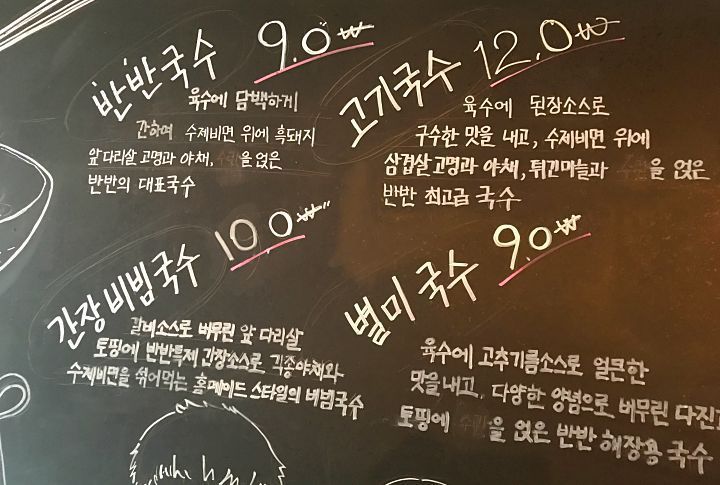 반반국수 9.0₩
육수에 담백하게
간하며 수제비면 위에 흑돼지
앞다리살 고명과 야채, 을 얹은
반반의 대표국수
고기국수 12.0₩
육수에 된장소스로
구수한 맛을 내고, 수제비면 위에
삼겹살 고명과 야채, 튀긴마늘과 을 얹은
반반 최고급 국수
간장비빔국수 10.0₩
갈비소스로 버무린 앞 다리살
토핑에 반반특제 간장소스로 각종야채와
수제비면을 섞어먹는 홈메이드 스타일의 비빔국수
별미국수 9.0₩
육수에 고추기름소스로 얼큰한
맛을내고, 다양한 양념으로 버무린 다진
토핑에 을 얹은 반반 해장용 국수